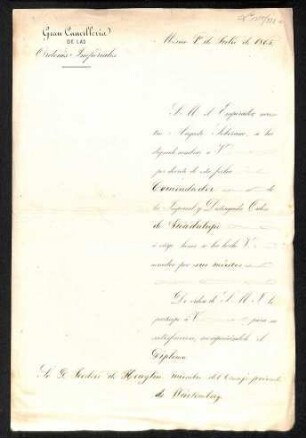 Gran Cancillería
DE LAS
Ordenes Imperiales
México 1º de Julio de 1865
S. M. el Emperador nues-
tro Augusto Soberano, se ha
dignado nombrar á V
por decreto de esta fecha
Comendador de
la Imperial y Distinguida Orden
de Guadalupe
á cuyo honor se ha hecho V
acreedor por sus méritos
De orden de S. M. I. lo
participo á V para su
satisfaccion, acompañándole el
Diploma
Sr. D. Teodoro de miembro del Consejo privado
de Würtemberg